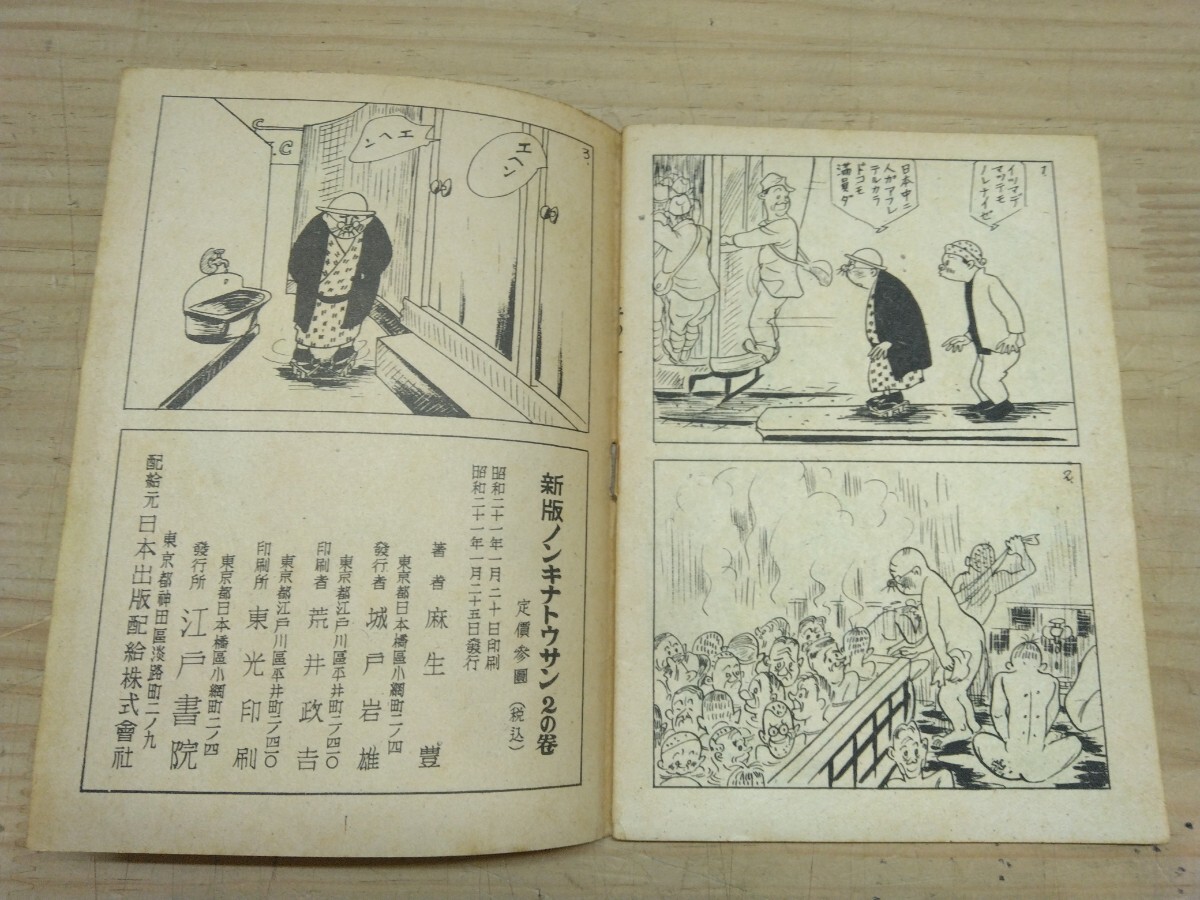 1.
イツマデ
マツテモ
ノレナイゼ
日本中ニ
人ガアフレ
テルカラ
ドコモ
満員ダ
2.
3.
エヘン
エヘン
C
新版ノンキナトウサン2の巻
定價参圓(税込)
昭和二十一年一月二十日印刷
昭和二十一年一月二十五日發行
著者 麻生豊
東京都日本橋區小網町二ノ四
發行者 城戸岩雄
東京都江戸川區平井町二ノ四一〇
印刷者 荒井政吉
東京都江戸川區平井町二ノ四一〇
印刷所 東光印刷
東京都日本橋區小網町二ノ四
發行所 江戸書院
東京都神田區淡路町二ノ九
配給元 日本出版配給株式會社